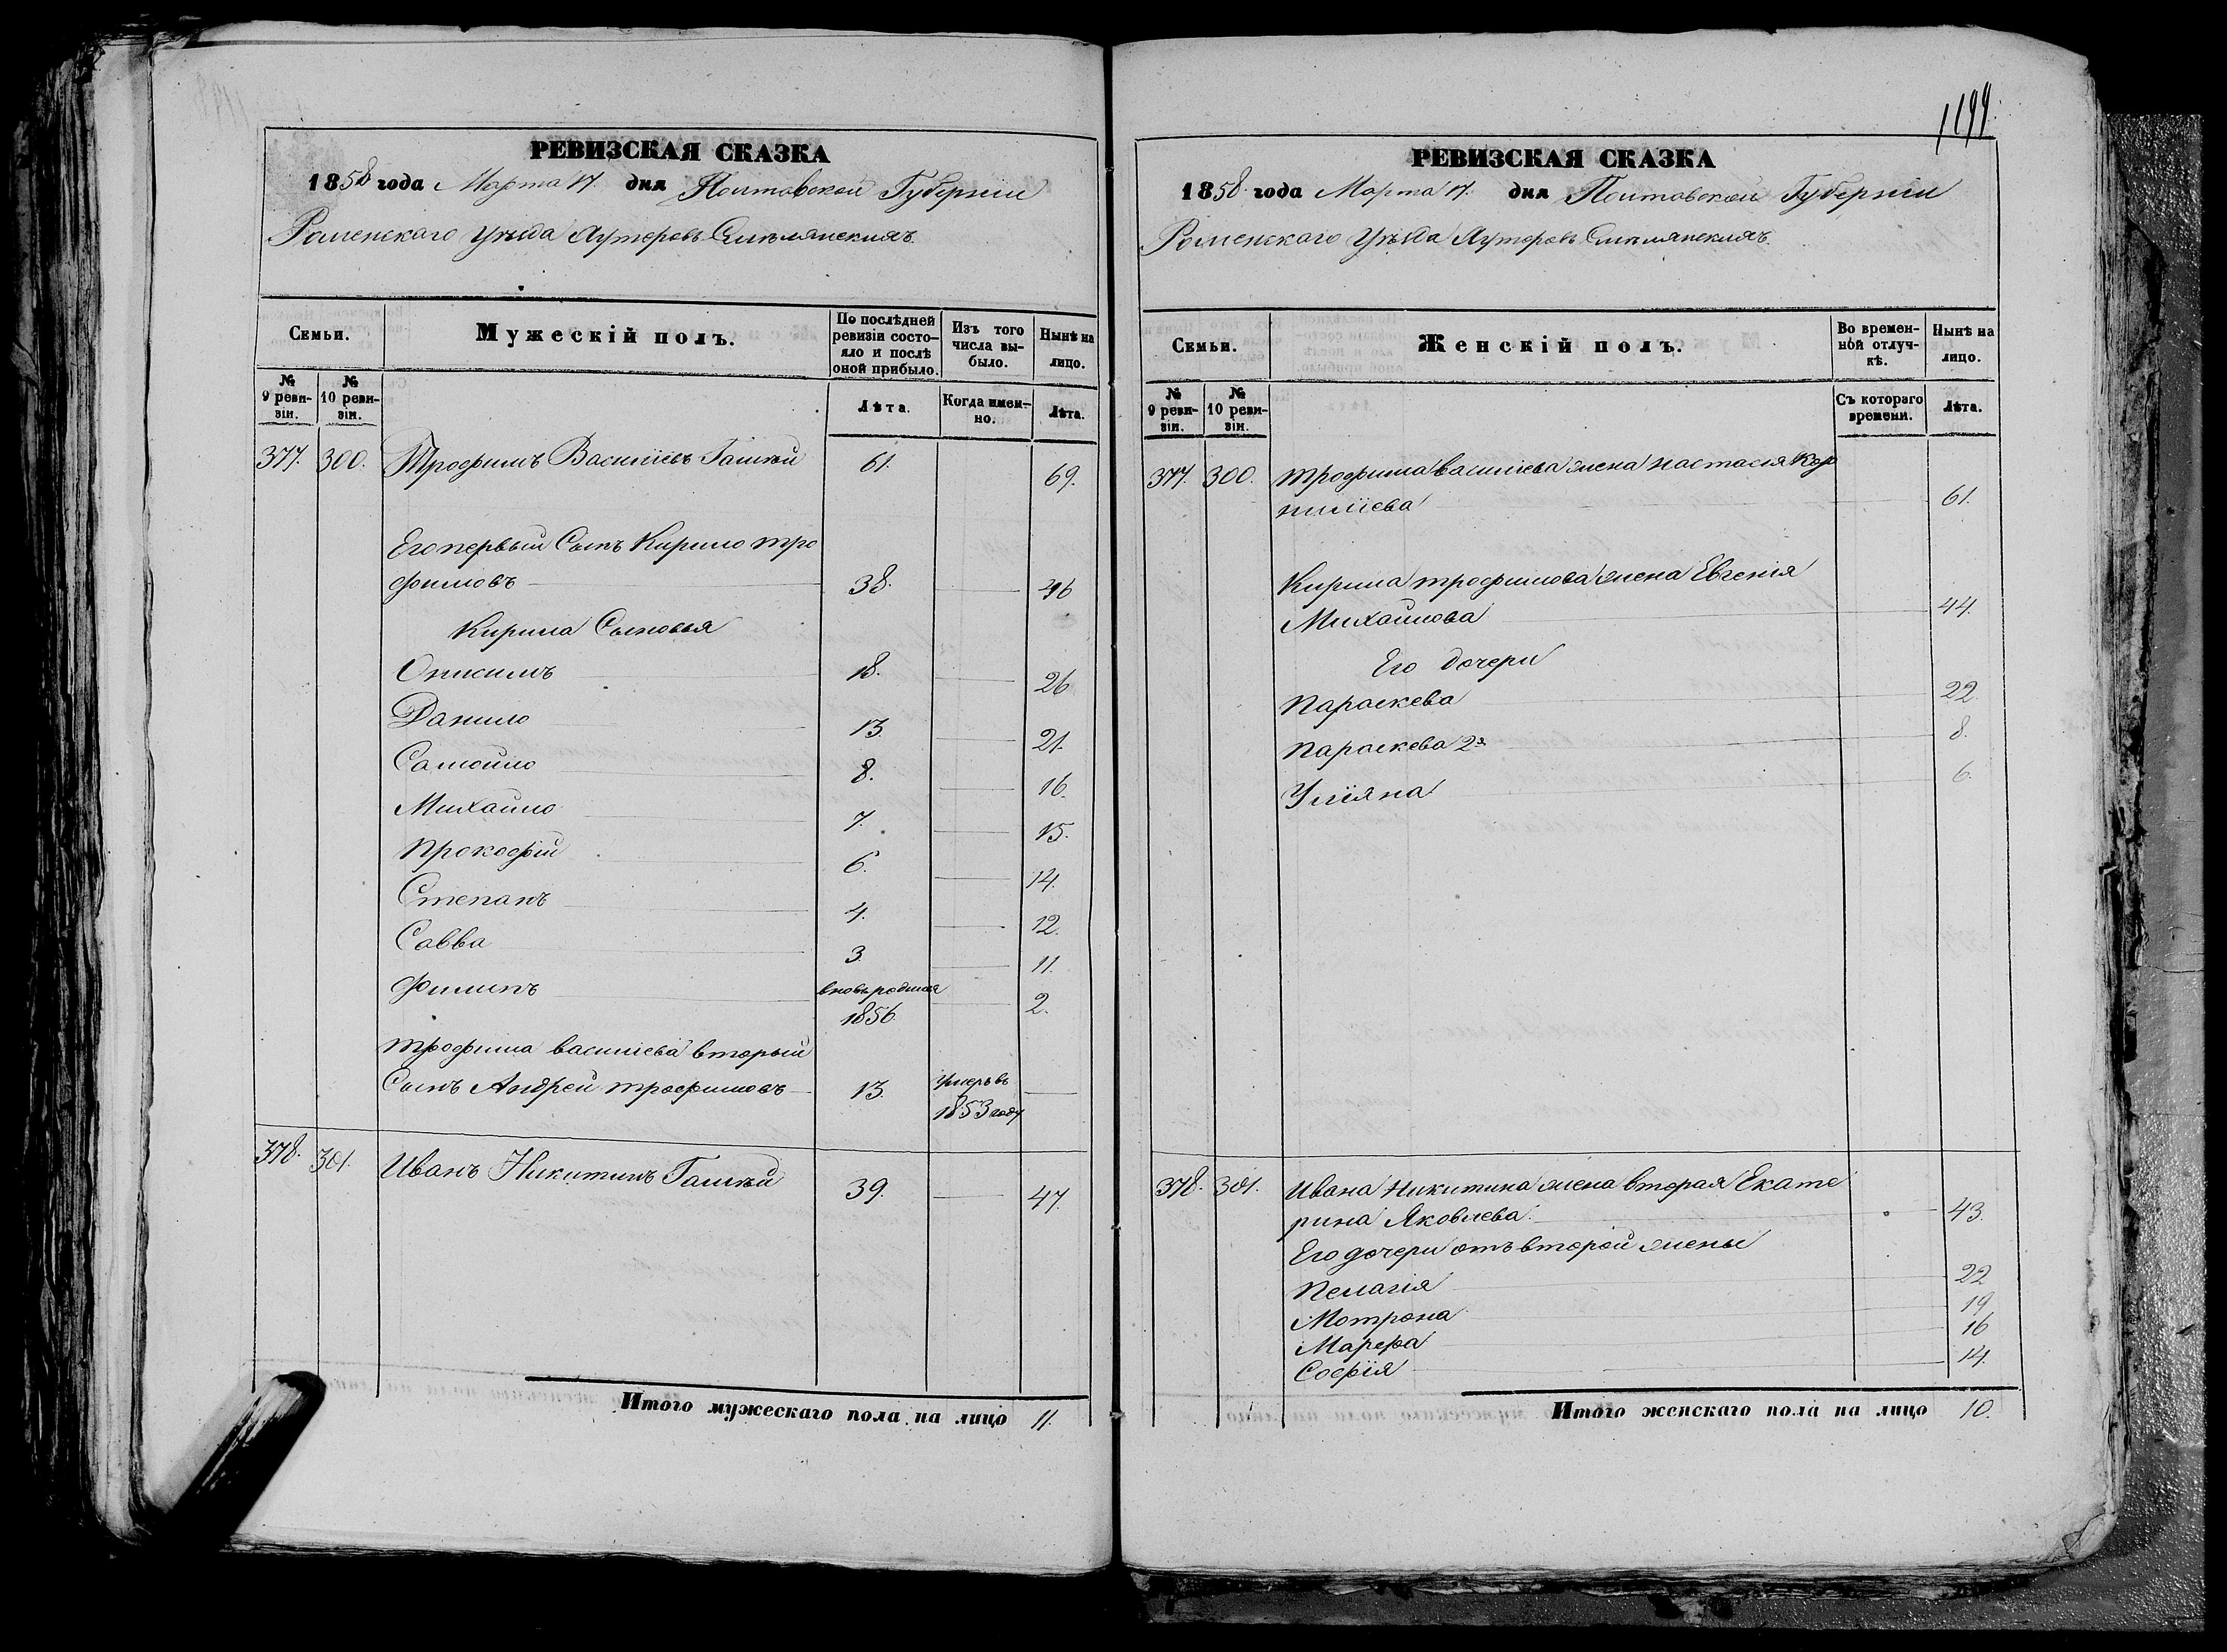 РЕВИЗСКАЯ СКАЗКА
1858 года Марта 17. дня Полтавской Губерніи
Роменскаго Уѣзда Хуторовъ Смѣлянскихъ.
Семьи.
Мужескій полъ.
По послѣдней ревизіи состояло и послѣ оной прибыло.
Изъ того числа выбыло.
Нынѣ на лицо.
№ 9 ревизіи.
№ 10 ревизіи.
Лѣта.
Когда именно.
Лѣта.
377. 300. Трофимъ Василіевъ 61. 69.
Его первый Сынъ Кирило тро
фимовъ 38. 46
Кирила Сыновья
Онисимъ 18. 26
Данило 13. 21.
Самойло 8. 16.
Михайло 7. 15.
Прокофій 6. 14.
Степанъ 4. 12.
Савва 3. 11.
Филипъ вновь родился 2.
1856
Трофима василіева вторый
Сынъ Андрей трофимовъ 13. Умеръ въ
1853 году
378. 301. Иванъ Никитинъ 39. 47.
Итого мужескаго пола на лицо 11.
1199
РЕВИЗСКАЯ СКАЗКА
1858 года Марта 17. дня Полтавской Губерніи
Роменскаго Уѣзда Хуторовъ Смѣлянскихъ.
Семьи.
Женскій полъ.
Во временной отлучкѣ.
Нынѣ на лицо.
№ 9 ревизіи.
№ 10 ревизіи.
Съ котораго времени.
Лѣта.
377. 300. Трофима василіева жена настасія Кор
ниліева 61.
Кирила трофимова жена Евгенія
Михайлова 44.
Его дочери
Параскева 22.
Параскева 2я 8.
Уліяна 6.
378. 301. Ивана Никитина жена вторая Екате
рина Яковлева. 43.
Его дочери отъ второй жены
Пелагія 22
Мотрона 19
Марфа 16
Софія 14.
Итого женскаго пола на лицо 10.